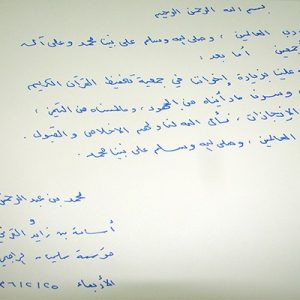 بسم الله الرحمن الرحيم
رب العالمين ، وصلى الله وسلم على نبينا محمد وعلى آله
أجمعين أما بعد :
علينا بزيارة إخواننا في جمعية تحفيظ القرآن الكريم
، وسرنا ما رأيناه من الجهود ، ولمسناه من التميز ،
الإنجازات ، نسأل الله لنا ولهم الإخلاص والقبول .
العالمين ، وصلى الله وسلم على نبينا محمد .
محمد بن عبد الرحمن
و
أسامة بن زايد
مؤسسة سليمان الراجحي
الأربعاء